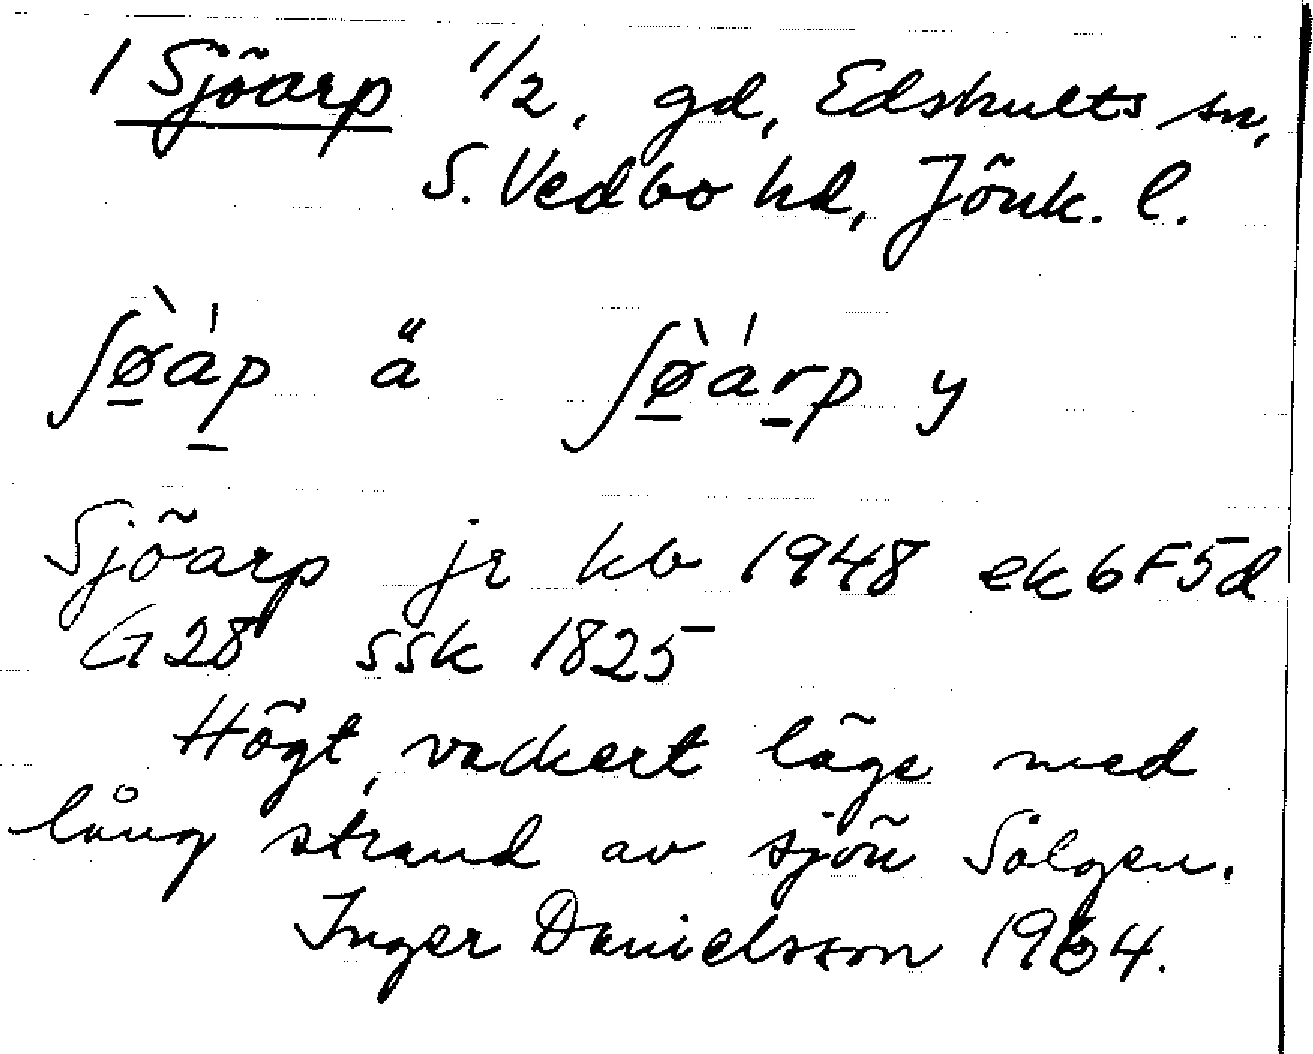 1 Sjöarp 1/2, gd, Edshults sn,
S. Vedbo hd, Jönk. l.
ʃø̱̀áp̱ ä ʃø̱̀áṟp y
Sjöarp jr kb 1948 ek 6F5d
G28 ssk 1825
Högt, vackert läge med
lång strand av sjön Solgen.
Inger Danielsson 1964.